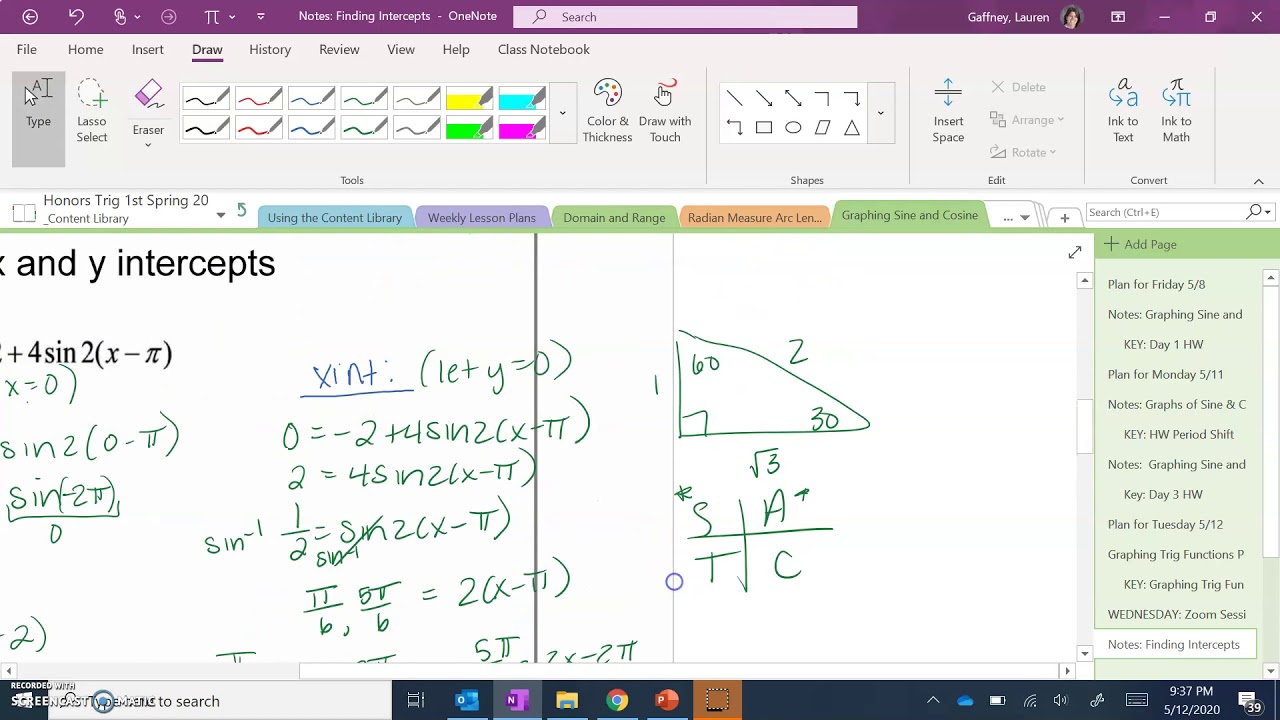 Notes: Finding Intercepts - OneNote
Search
Gaffney, Lauren
File Home Insert Draw History Review View Help Class Notebook
Type
Lasso Select
Eraser
Color & Thickness
Draw with Touch
Insert Space
Delete
Arrange
Rotate
Ink to Text
Ink to Math
Tools
Shapes
Edit
Convert
Honors Trig 1st Spring 20
_Content Library
Using the Content Library
Weekly Lesson Plans
Domain and Range
Radian Measure Arc Len...
Graphing Sine and Cosine
...
Search (Ctrl+E)
Add Page
Plan for Friday 5/8
Notes: Graphing Sine and
KEY: Day 1 HW
Plan for Monday 5/11
Notes: Graphs of Sine & C
KEY: HW Period Shift
Notes: Graphing Sine and
Key: Day 3 HW
Plan for Tuesday 5/12
Graphing Trig Functions P
KEY: Graphing Trig Fun
WEDNESDAY: Zoom Sessi
Notes: Finding Intercepts
x and y intercepts
2 + 4 sin 2(x − π)
x=0)
sin2(0-π)
sin(-2π)
0
-2)
xint: (let y=0)
0 = -2+4sin2(x-π)
2 = 4sin2(x-π)
sin⁻¹ 1/2 = sin2(x-π)
sin⁻¹
π/6, 5π/6 = 2(x-π)
5π
2x-2π
60
2
1
30
√3
*S A*
T C
RECORDED WITH
SCREENCAST-O-MATIC
to search
9:37 PM
5/12/2020
39